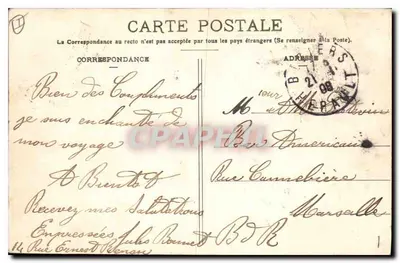 I
CARTE POSTALE
La Correspondance au recto n'est pas acceptée par tous les pays étrangers (Se renseigner à la Poste).
CORRESPONDANCE
ADRESSE
BEZIERS
21
08
HERAULT
Bien des Compliments
je suis enchanté de
mon voyage
A Bientot
Recevez mes Salutations
Empressées Jules Bonnet
14 Rue Ernest Renan
M
Bar Americain
Rue Cannebière
Marseille
BdR
CARTPECAP